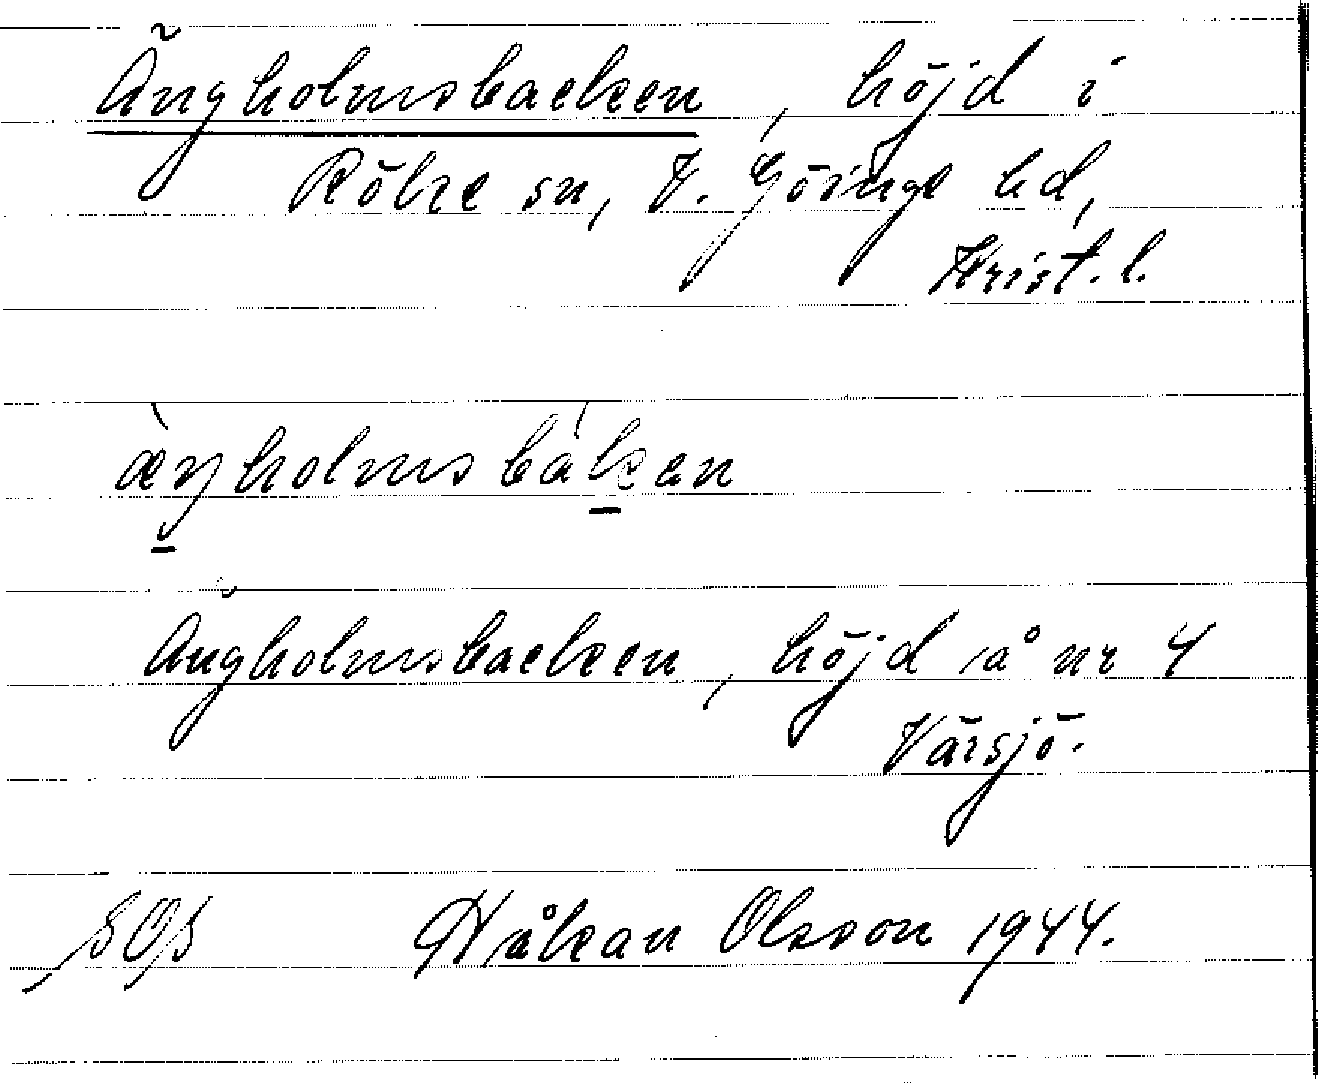 Ängholmsbacken, höjd i
Röke sn, V. Göinge hd,
Krist. l.
æ̀ŋholmsbákan
Ängholmsbacken, höjd å nr 4
Värsjö.
SOS Håkan Olsson 1944.